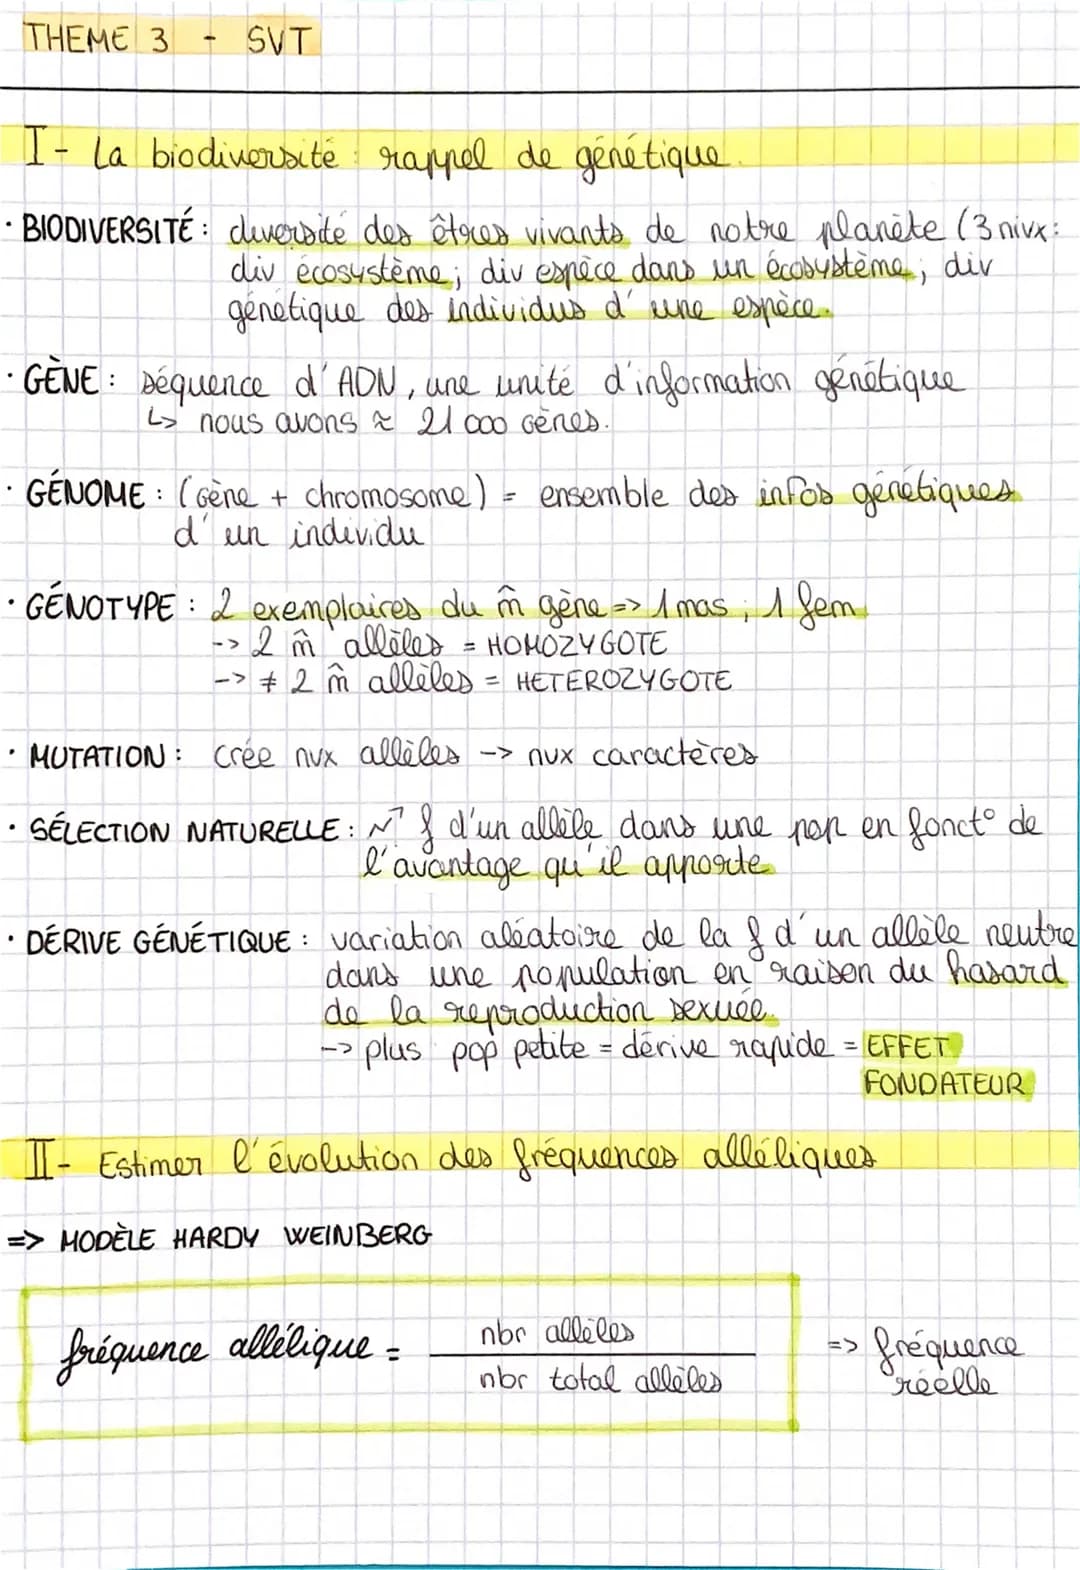 THEME 3 - SVT
I - La biodiversité : rappel de génétique.
· BIODIVERSITÉ : diversité des êtres vivants de notre planète (3 nivx :
div écosystème ; div espèce dans un écosystème ; div
génétique des individus d'une espèce.
· GÈNE : séquence d'ADN, une unité d'information génétique
↳ nous avons ≈ 21 000 gènes.
· GÉNOME : (gène + chromosome) = ensemble des infos génétiques
d'un individu
· GÉNOTYPE : 2 exemplaires du m̂ gène => 1 mas ; 1 fem
-> 2 m̂ allèles = HOMOZYGOTE
-> ≠ 2 m̂ allèles = HETEROZYGOTE
· MUTATION : crée nvx allèles -> nvx caractères
· SÉLECTION NATURELLE : f d'un allèle dans une pop en fonct° de
l'avantage qu'il apporte
· DÉRIVE GÉNÉTIQUE : variation aléatoire de la f d'un allèle neutre
dans une population en raison du hasard
de la reproduction sexuée.
-> plus pop petite = dérive rapide = EFFET
FONDATEUR
II - Estimer l'évolution des fréquences alléliques
=> MODÈLE HARDY WEINBERG
fréquence allélique = nbr allèles => fréquence
nbr total allèles réelle